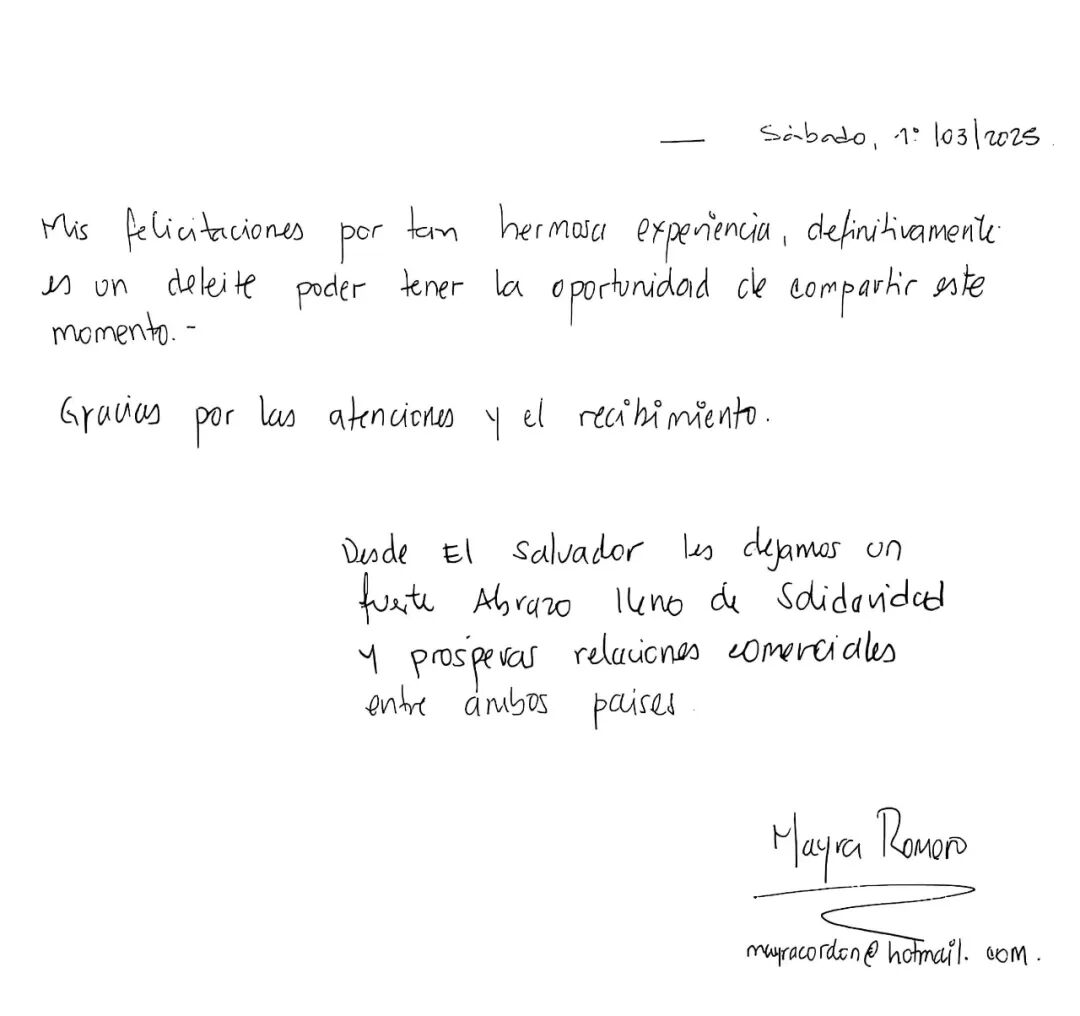 — Sábado, 1º/03/2025.
Mis felicitaciones por tan hermosa experiencia, definitivamente
es un deleite poder tener la oportunidad de compartir este
momento.-
Gracias por las atenciones y el recibimiento.
Desde El Salvador les dejamos un
fuerte Abrazo lleno de Solidaridad
y prósperas relaciones comerciales
entre ámbos paises.
Mayra Romero
mayracordon@hotmail.com.